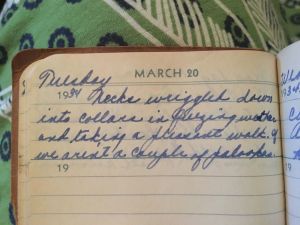 Tuesday MARCH 20
1934 Necks wriggled down
into collars in freezing weather
and taking a pleasant walk. If
we aren't a couple of palookas.
19